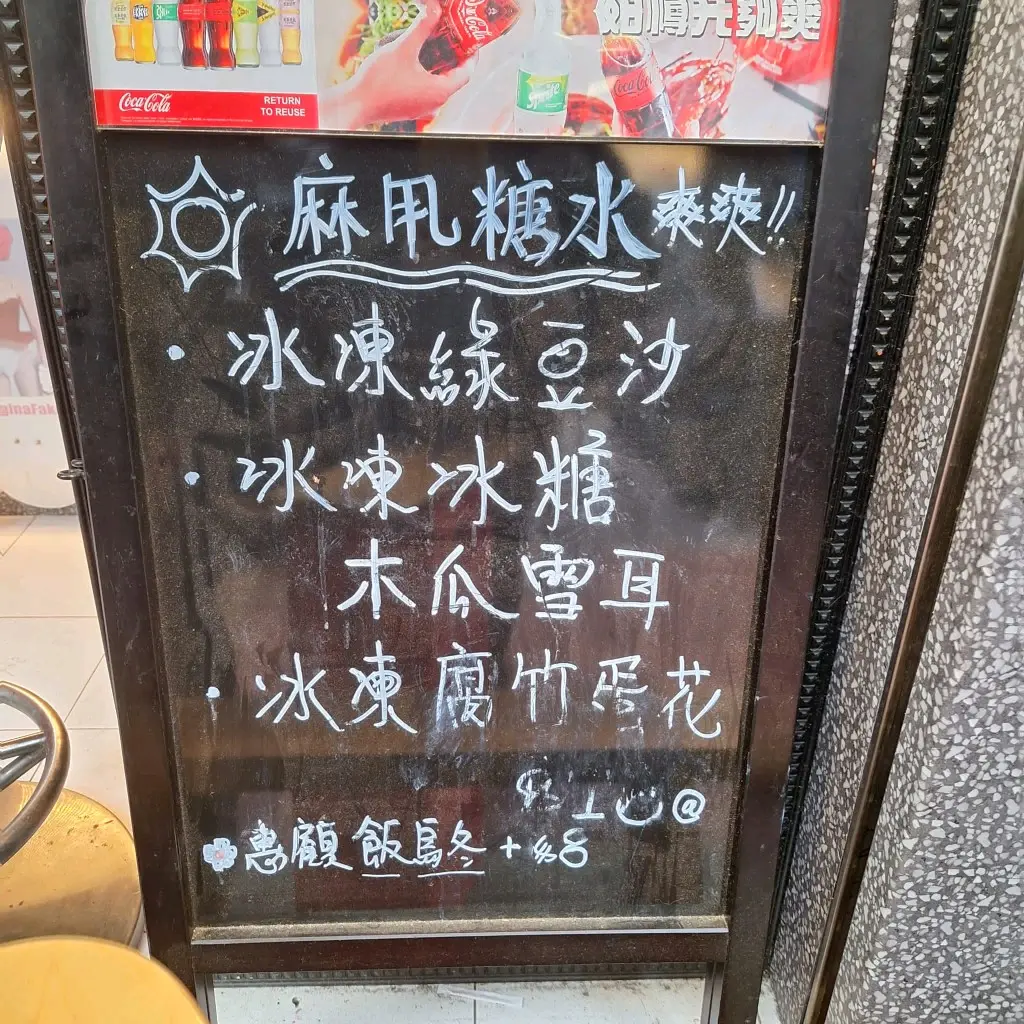 Coca-Cola
RETURN
TO REUSE
Coca-Cola
Sprite
Coca-Cola
麻甩糖水爽爽!!
冰凍綠豆沙
冰凍冰糖
木瓜雪耳
冰凍腐竹蛋花
@
惠顧飯
+ $8